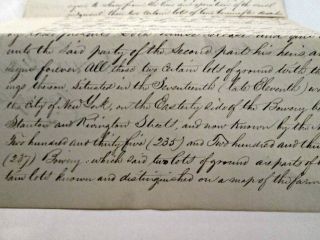 unto the said party of the Second part his heirs an
signs forever. All those two certain lots of ground with th
ings thereon, situated in the Seventeenth (late Eleventh) w
the City of New York, on the Easterly side of the Bowery be
Stanton and Rivington Streets, and now Known by the N
Two hundred and thirty five (235) and Two hundred and thirt
(237) Bowery: which said two lots of ground as parts of c
tain lots known and distinguished on a map of the farm